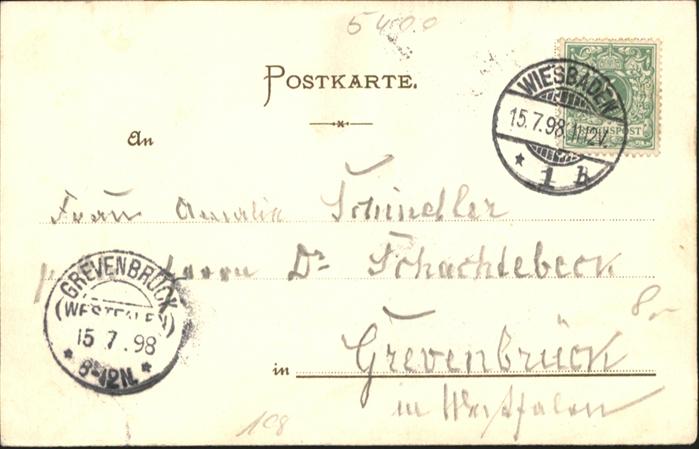 5400
POSTKARTE.
WIESBADEN
15.7.98.11-12V.
* 1 h
REICHSPOST
An
Frau Amalie Schindler
Herrn Dr Schachtebeck
GREVENBRÜCK
(WESTFALEN)
15 7.98
* 8-12N. *
8,-
in Grevenbrück
in Westfalen
108